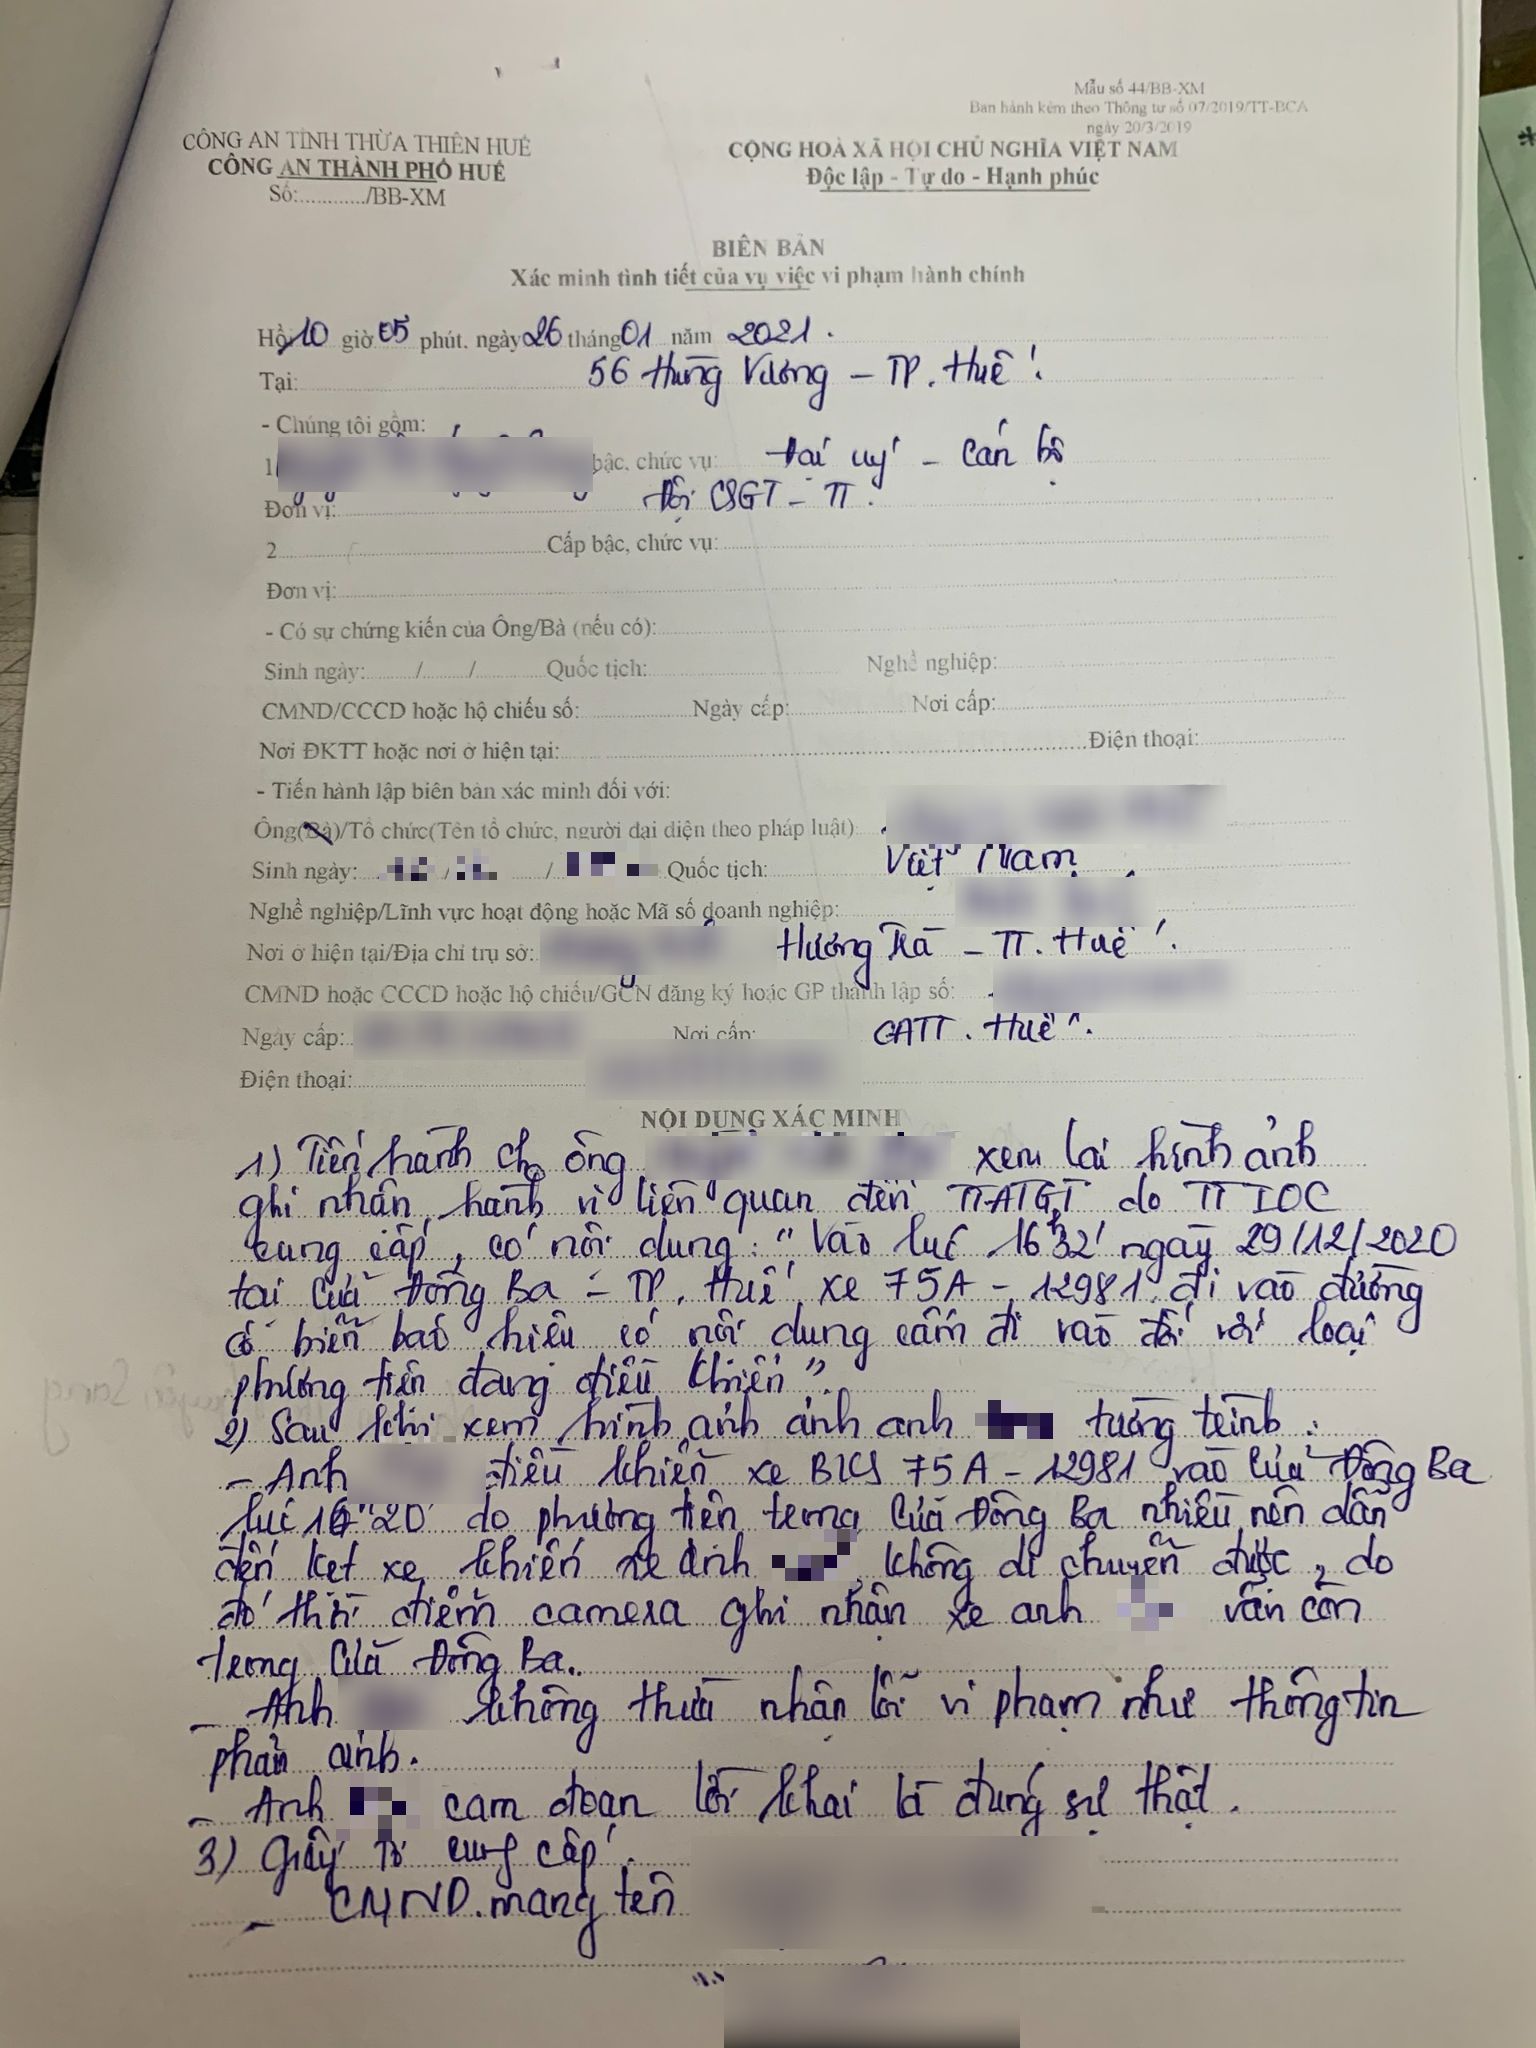 Mẫu số 44/BB-XM
Ban hành kèm theo Thông tư số 07/2019/TT-BCA
ngày 20/3/2019
CÔNG AN TỈNH THỪA THIÊN HUẾ
CÔNG AN THÀNH PHỐ HUẾ
Số:............/BB-XM
CỘNG HOÀ XÃ HỘI CHỦ NGHĨA VIỆT NAM
Độc lập - Tự do - Hạnh phúc
BIÊN BẢN
Xác minh tình tiết của vụ việc vi phạm hành chính
Hồi 10 giờ 05 phút. ngày 26 tháng 01 năm 2021.
Tại: 56 Hùng Vương – TP. Huế.
- Chúng tôi gồm:
1 bậc, chức vụ: Đại uý – Cán bộ
Đơn vị: Đội CSGT – TT.
2 Cấp bậc, chức vụ:
Đơn vị:
- Có sự chứng kiến của Ông/Bà (nếu có):
Sinh ngày: / / Quốc tịch: Nghề nghiệp:
CMND/CCCD hoặc hộ chiếu số: Ngày cấp: Nơi cấp:
Nơi ĐKTT hoặc nơi ở hiện tại: Điện thoại:
- Tiến hành lập biên bản xác minh đối với:
Ông(Bà)/Tổ chức(Tên tổ chức, người đại diện theo pháp luật):
Sinh ngày: / / Quốc tịch: Việt Nam
Nghề nghiệp/Lĩnh vực hoạt động hoặc Mã số doanh nghiệp:
Nơi ở hiện tại/Địa chỉ trụ sở: Hương Trà – TT. Huế.
CMND hoặc CCCD hoặc hộ chiếu/GCN đăng ký hoặc GP thành lập số:
Ngày cấp: Nơi cấp: CATT. Huế.
Điện thoại:
NỘI DUNG XÁC MINH
1) Tiến hành cho ông xem lại hình ảnh
ghi nhận hành vi liên quan đến TTATGT do TT IOC
cung cấp, có nội dung: "Vào lúc 16h32' ngày 29/12/2020
tại Cửa Đông Ba – TP. Huế xe 75A – 12981 đi vào đường
có biển báo hiệu có nội dung cấm đi vào đối với loại
phương tiện đang điều khiển".
2) Sau khi xem hình ảnh ảnh anh tường trình:
– Anh điều khiển xe BKS 75A – 12981 vào Cửa Đông Ba
lúc 16h20' do phương tiện trong Cửa Đông Ba nhiều nên dẫn
đến kẹt xe khiến xe anh không di chuyển được, do
đó thời điểm camera ghi nhận xe anh vẫn còn
trong Cửa Đông Ba.
– Anh không thừa nhận lỗi vi phạm như thông tin
phản ánh.
– Anh cam đoan lời khai là đúng sự thật.
3) Giấy tờ cung cấp.
– CMND mang tên